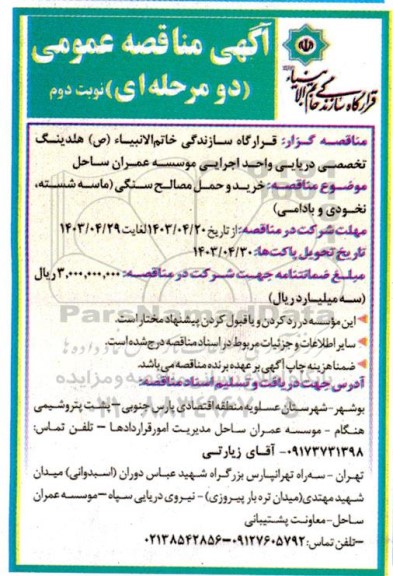 قرارگاه سازندگی خاتم الانبیاء
آگهی مناقصه عمومی
(دو مرحله‌ای) نوبت دوم
مناقصه گزار: قرارگاه سازندگی خاتم‌الانبیاء (ص) هلدینگ
تخصصی دریایی واحد اجرایی موسسه عمران ساحل
موضوع مناقصه: خرید و حمل مصالح سنگی (ماسه شسته،
نخودی و بادامی)
مهلت شرکت در مناقصه: از تاریخ ۱۴۰۳/۰۴/۲۰ لغایت ۱۴۰۳/۰۴/۲۹
تاریخ تحویل پاکت‌ها: ۱۴۰۳/۰۴/۳۰
مبلغ ضمانتنامه جهت شرکت در مناقصه: ۳,۰۰۰,۰۰۰,۰۰۰ ریال
(سه میلیارد ریال)
این مؤسسه در رد کردن و یا قبول کردن پیشنهاد مختار است.
سایر اطلاعات و جزئیات مربوط در اسناد مناقصه درج شده است.
ضمنا هزینه چاپ آگهی بر عهده برنده مناقصه می باشد.
آدرس جهت دریافت و تسلیم اسناد مناقصه:
بوشهر - شهرستان عسلویه منطقه اقتصادی پارس جنوبی – سایت پتروشیمی
هنگام - موسسه عمران ساحل مدیریت امور قراردادها – تلفن تماس:
۰۹۱۷۳۷۳۱۳۹۸- آقای زیارتی
تهران - سه‌راه تهرانپارس بزرگراه شهید عباس دوران (اسبدوانی) میدان
شهید مهتدی (میدان تره بار پیروزی) - نیروی دریایی سپاه – موسسه عمران
ساحل- معاونت پشتیبانی
–تلفن تماس: ۰۹۱۲۷۶۰۵۷۹۲–۰۲۱۳۸۵۴۲۸۵۶
ParsNamadData